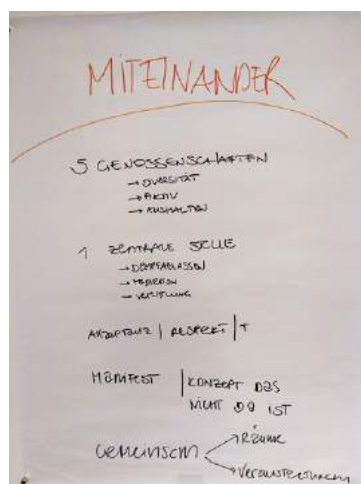 MITEINANDER
5 GENOSSENSCHAFTEN
→ DIVERSITÄT
→ AKTIV
→ AUSHALTEN
1 ZENTRALE STELLE
→ DAMPFABLASSEN
→ MEDIATION
→ VERMITTLUNG
AKZEPTANZ | RESPEKT | +
MANIFEST | KONZEPT DAS
NICHT DA IST
GEMEINSAM → RÄUME
→ VERANSTALTUNGEN